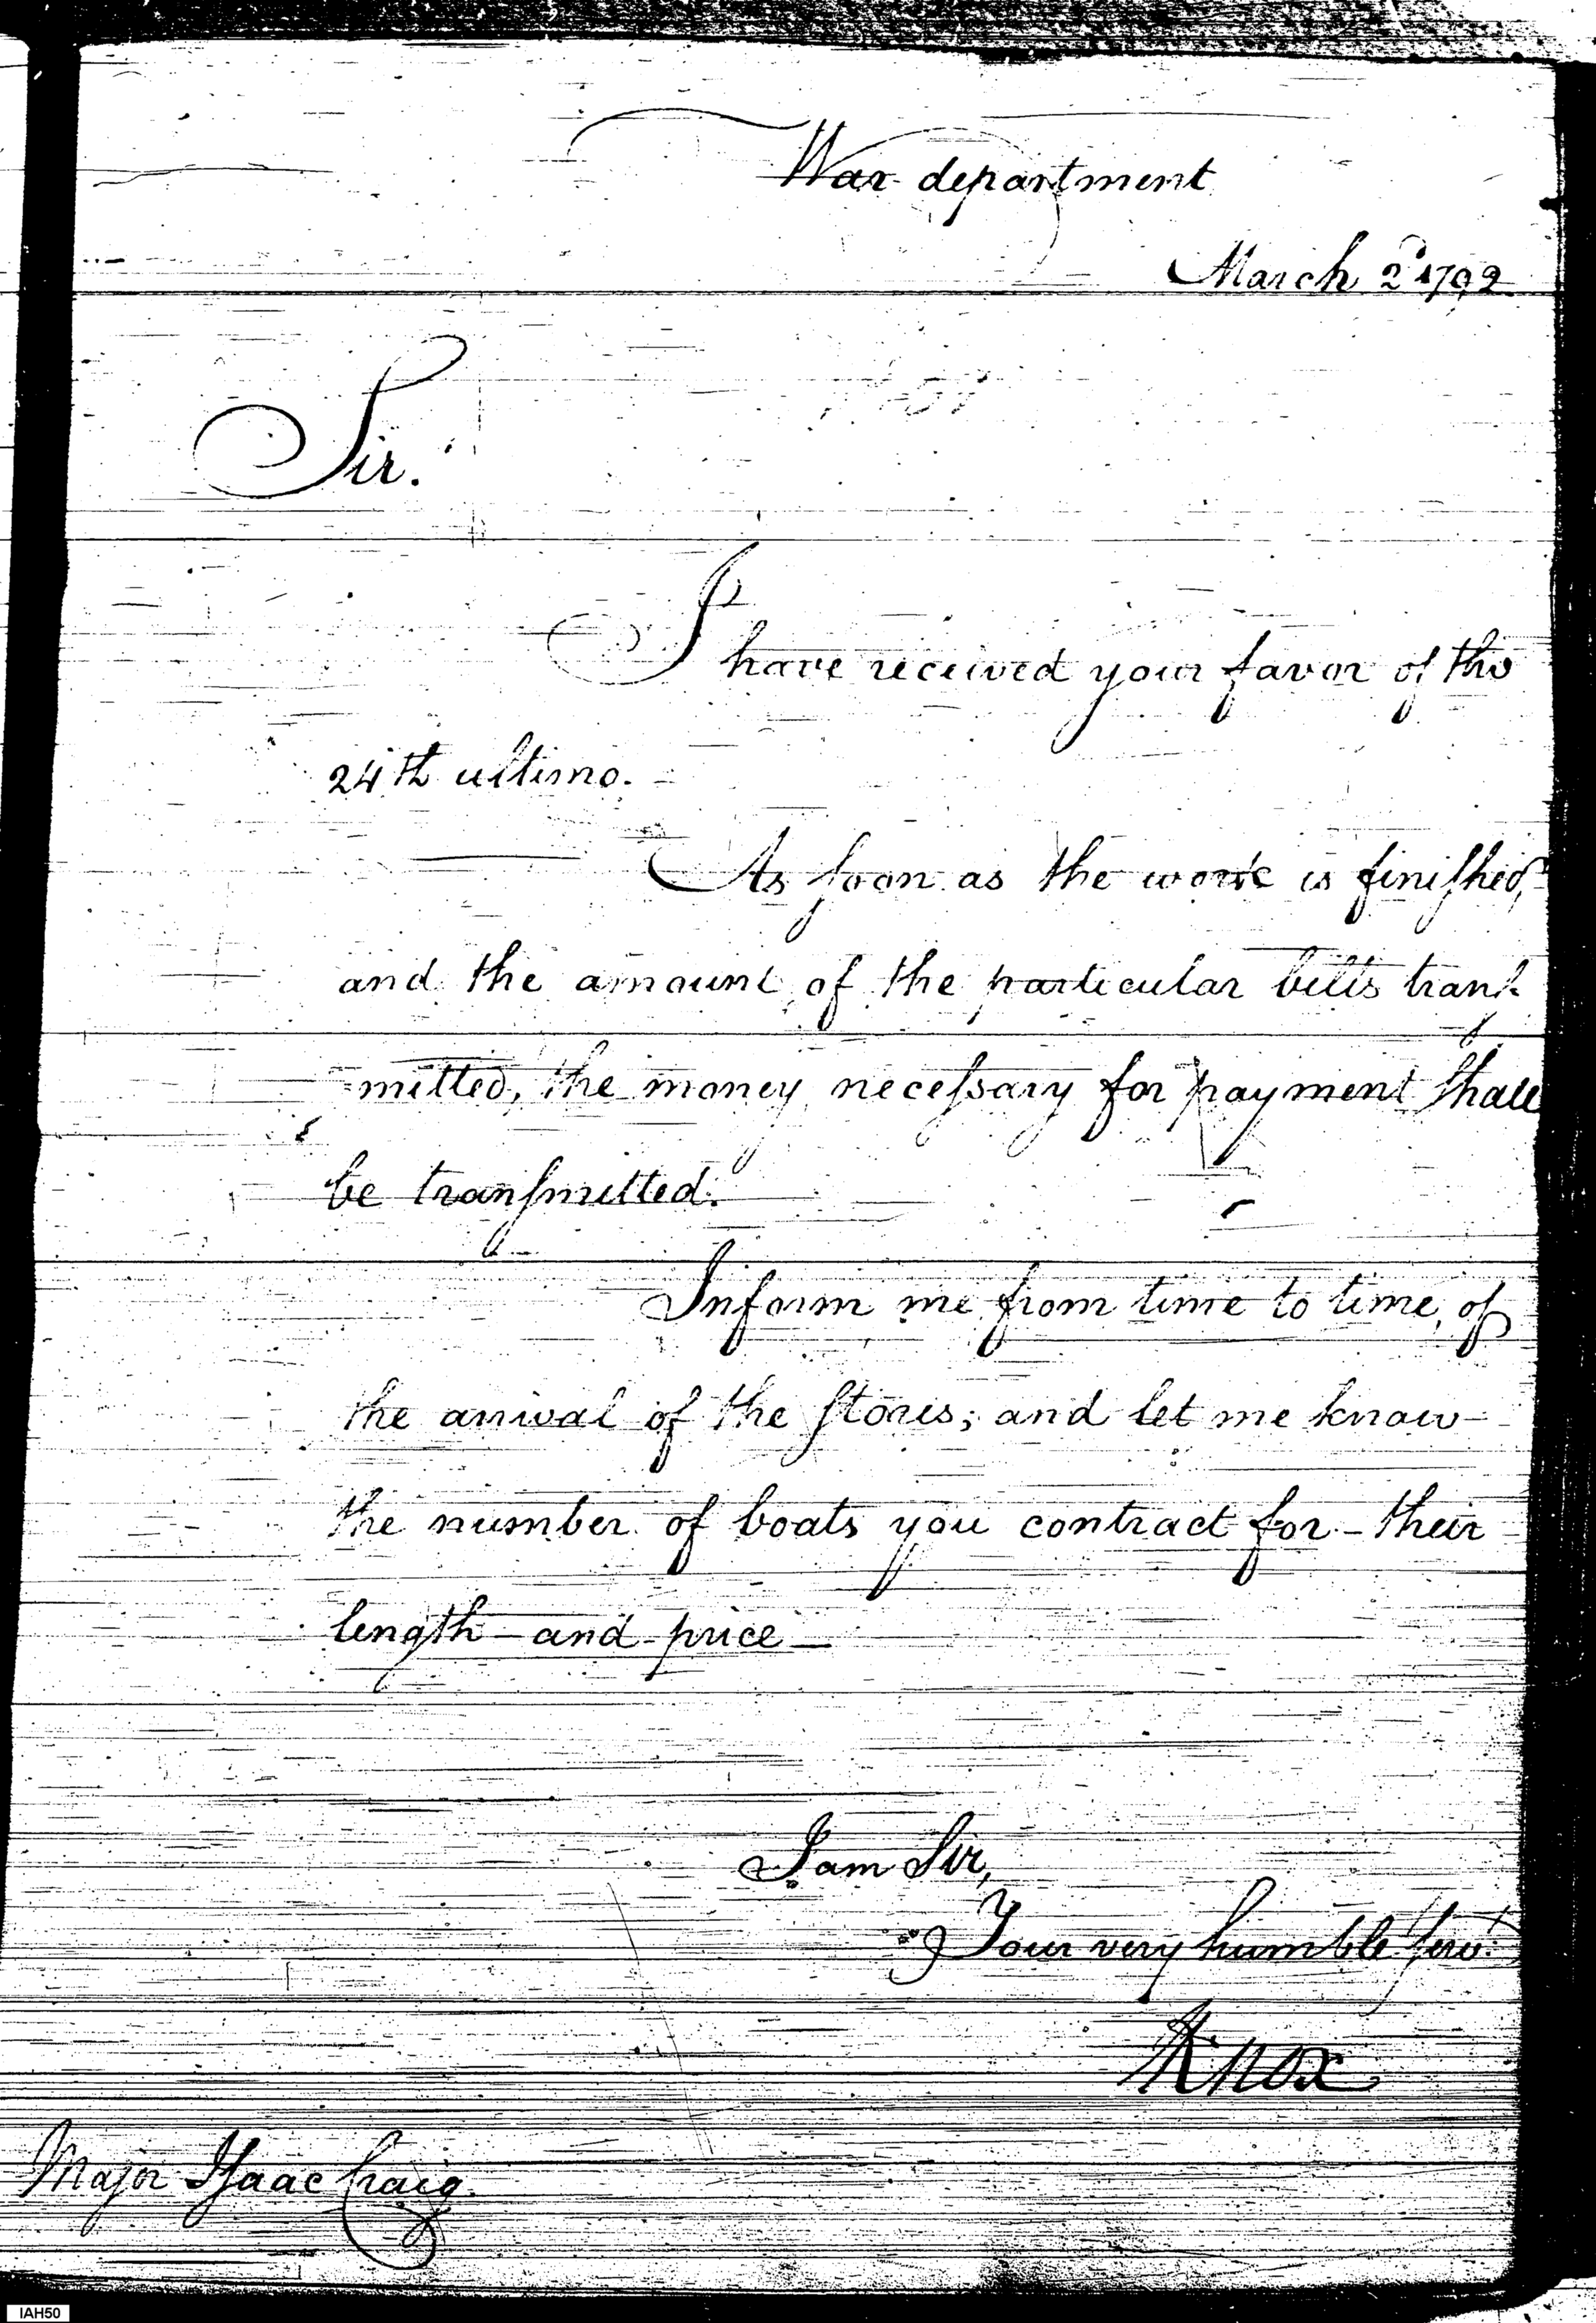 War department
March 2d 1792
Sir.
I have received your favor of the
24th ultimo.
As soon as the work is finished,
and the amount of the particular bills trans-
mitted, the money necessary for payment shall
be transmitted.
Inform me from time to time, of
the arrival of the stores; and let me know
the number of boats you contract for - their
length - and - price -
I am Sir,
Your very humble Servt.
HKnox
Major Isaac Craig.
IAH50